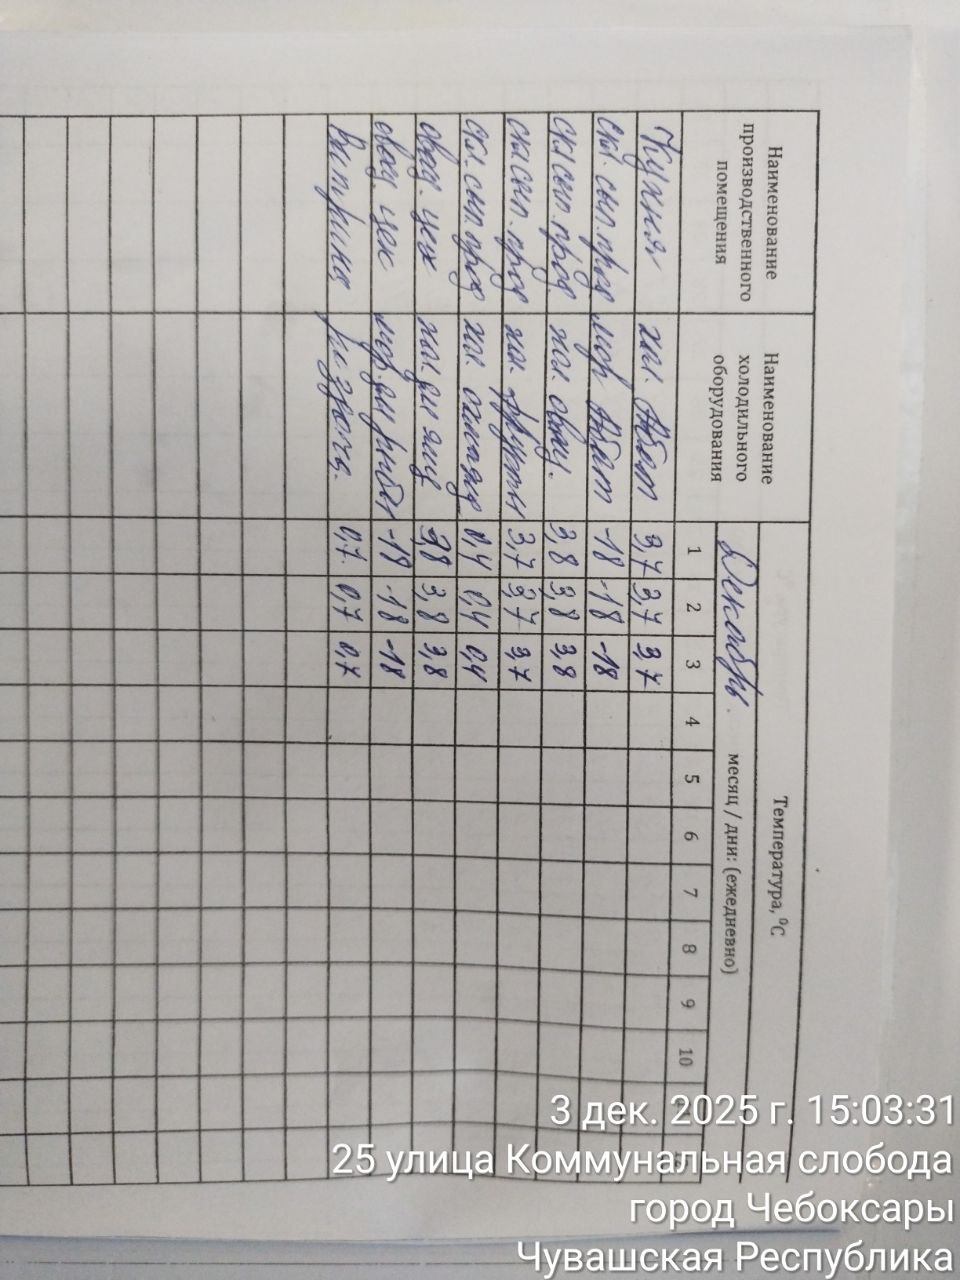 Наименование производственного помещения
Наименование холодильного оборудования
Температура, ⁰С
Декабрь. месяц / дни: (ежедневно)
1 2 3 4 5 6 7 8 9 10
Кухня хол. Абат 3,7 3,7 3,7
скл. сып. прод мор. Абат -18 -18 -18
скл сып. прод. хол. овощ. 3,8 3,8 3,8
скл сып. прод хол. фрукты 3,7 3,7 3,7
скл. сып. прод хол. 0,4 0,4 0,4
овощ. цех хол. для яиц 3,8 3,8 3,8
овощ. цех мор. для рыбы -18 -18 -18
Витрина 0,7. 0,7 0,7
3 дек. 2025 г. 15:03:31
25 улица Коммунальная слобода
город Чебоксары
Чувашская Республика